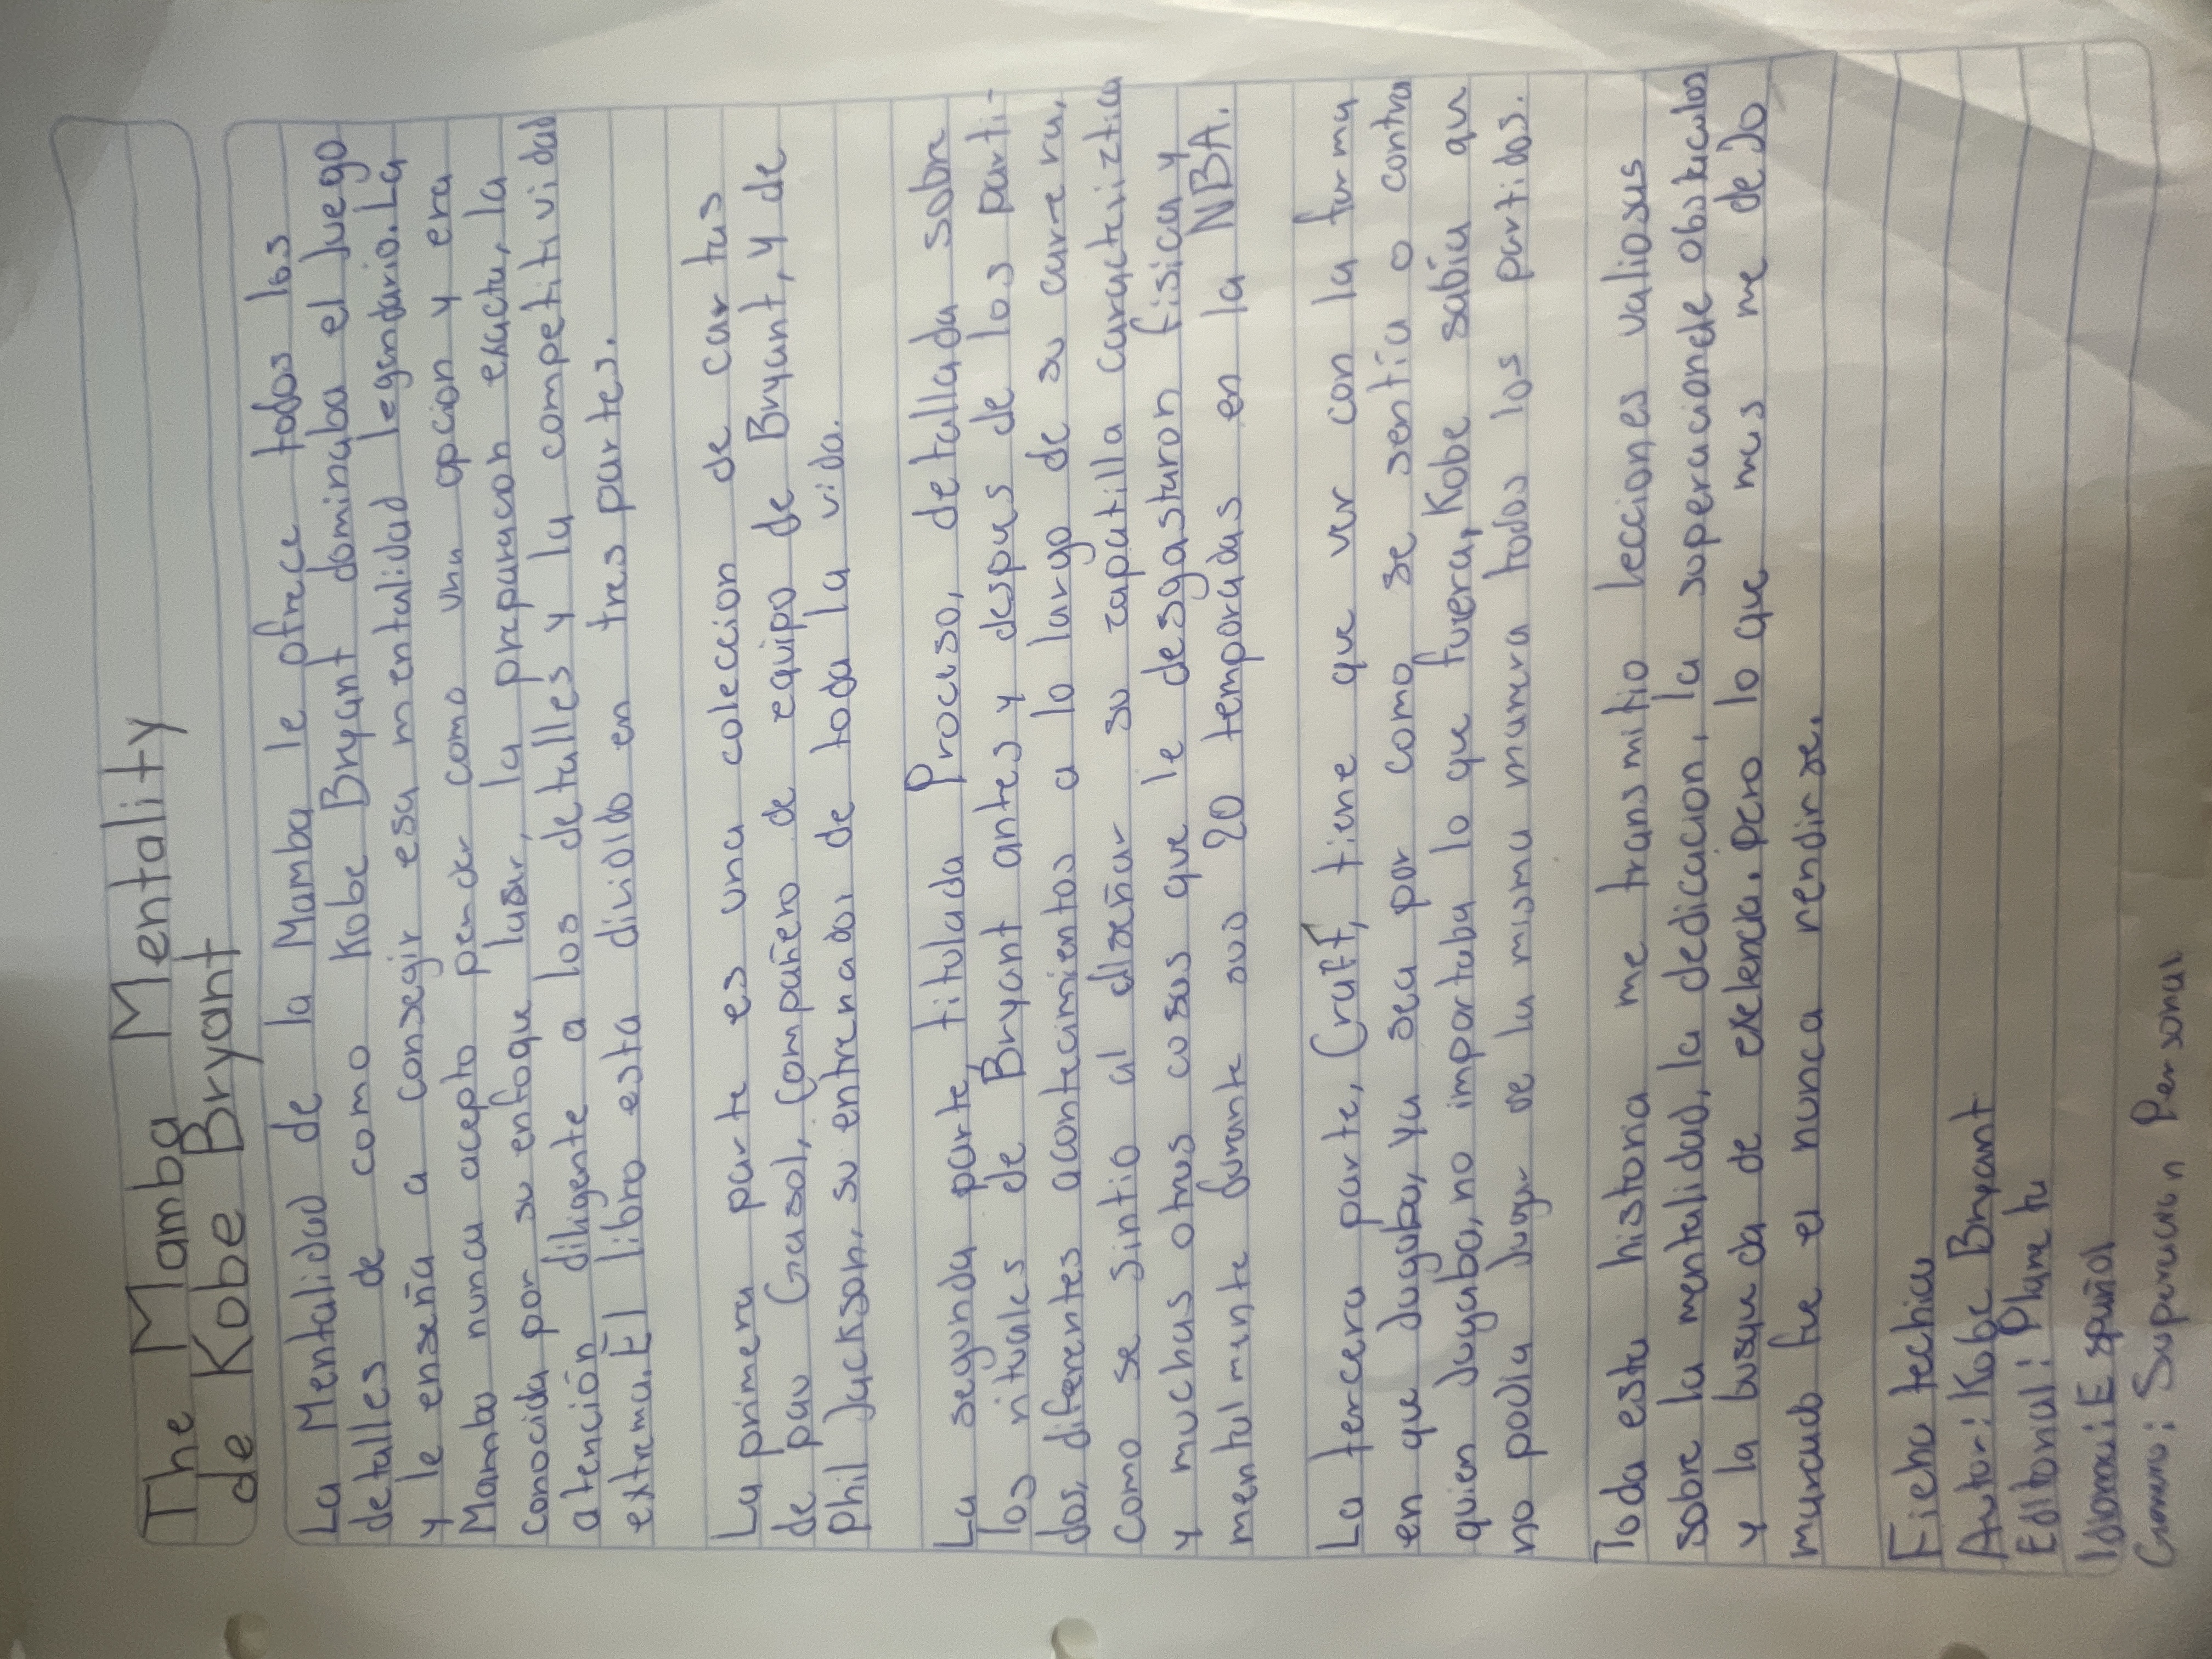 The Mamba Mentality
de Kobe Bryant
La Mentalidad de la Mamba le ofrece todos los
detalles de como Kobe Bryant dominaba el juego
y le enseña a consegir esa mentalidad legendario. La
Mamba nunca acepto perder como una opcion y era
conocida por su enfoque lasar, la preparacon exacta, la
atención diligente a los detalles y la competitividad
extrema. El libro esta dividido en tres partes.
La primera parte es una coleccion de cartas
de pau Gasol, compañero de equipo de Bryant, y de
Phil Jackson, su entrenador de toda la vida.
La segunda parte, titulada Procuso, detallada sobre
los rituales de Bryant antes y despues de los parti-
dos, diferentes acontecimientos a lo largo de su carrera,
como se sintio al diseñar su zapatilla caracteriztica
y muchas otras cosas que le desgastaron fisica y
mentalmente durante sus 20 temporadas en la NBA.
La tercera parte, Craft, tiene que ver con la forma
en que Jugaba, ya sea por como se sentia o contra
quien Jugaba, no importaba lo que fuera, Kobe sabia que
no podia Jugar de la misma munera todos los partidos.
Toda esta historia me transmitio lecciones valiosas
sobre la mentalidad, la dedicacion, la superacionde obstaculos
y la busqueda de exelencia. pero lo que mas me dejo
marcado fue el nunca rendirse.
Ficha techica
Autor: Kobe Bryant
Editorial: Planeta
Idoma: Español
Genero: Superacion Personal